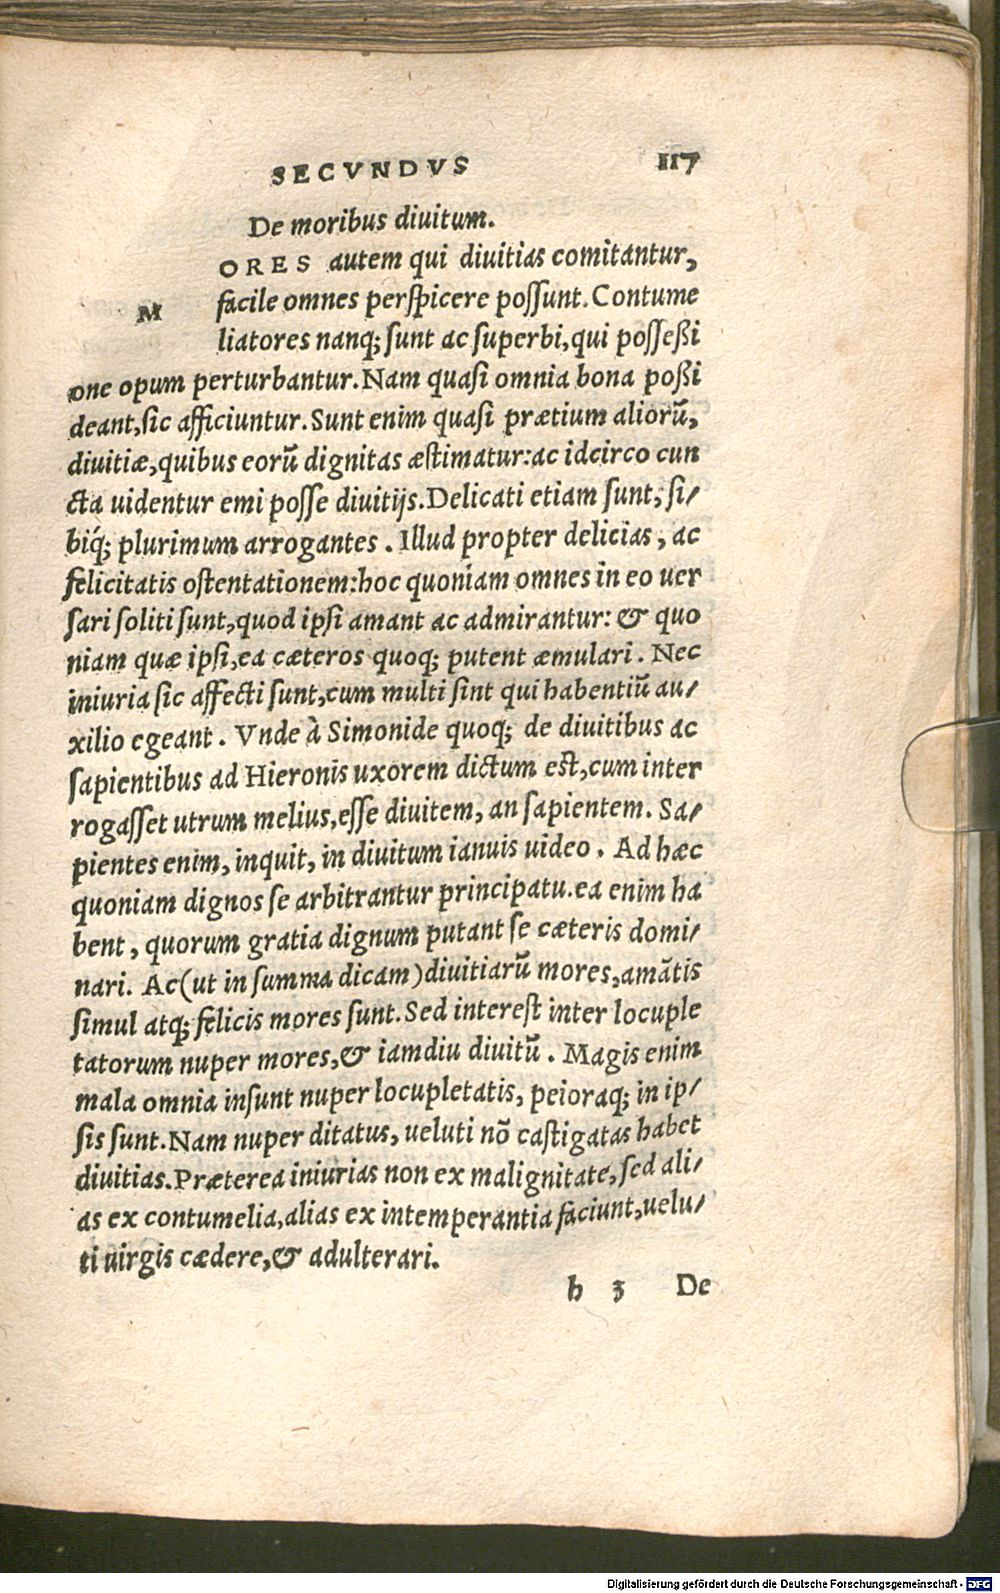 SECVNDVS 117
De moribus diuitum.
M
ORES autem qui diuitias comitantur,
facile omnes perſpicere poſſunt. Contume
liatores nanq; ſunt ac ſuperbi, qui poſſeßi
one opum perturbantur. Nam quaſi omnia bona poßi
deant, ſic afficiuntur. Sunt enim quaſi prætium aliorũ,
diuitiæ, quibus eorũ dignitas æſtimatur: ac idcirco cun
cta uidentur emi poſſe diuitijs. Delicati etiam ſunt, ſi/
biq́; plurimum arrogantes. Illud propter delicias, ac
felicitatis oſtentationem: hoc quoniam omnes in eo uer
ſari ſoliti ſunt, quod ipſi amant ac admirantur: & quo
niam quæ ipſi, ea cæteros quoq; putent æmulari. Nec
iniuria ſic affecti ſunt, cum multi ſint qui habentiũ au/
xilio egeant. Vnde à Simonide quoq; de diuitibus ac
ſapientibus ad Hieronis uxorem dictum eſt, cum inter
rogaſſet utrum melius, eſſe diuitem, an ſapientem. Sa/
pientes enim, inquit, in diuitum ianuis uideo. Ad hæc
quoniam dignos ſe arbitrantur principatu. ea enim ha
bent, quorum gratia dignum putant ſe cæteris domi/
nari. Ac (ut in ſumma dicam) diuitiarũ mores, amẽtis
ſimul atq; felicis mores ſunt. Sed intereſt inter locuple
tatorum nuper mores, & iamdiu diuitũ. Magis enim
mala omnia inſunt nuper locupletatis, peioraq; in ip/
ſis ſunt. Nam nuper ditatus, ueluti nõ caſtigatas habet
diuitias. Præterea iniurias non ex malignitate, ſed ali/
as ex contumelia, alias ex intemperantia faciunt, uelu/
ti uirgis cædere, & adulterari.
h 3 De
Digitalisierung gefördert durch die Deutsche Forschungsgemeinschaft - DFG